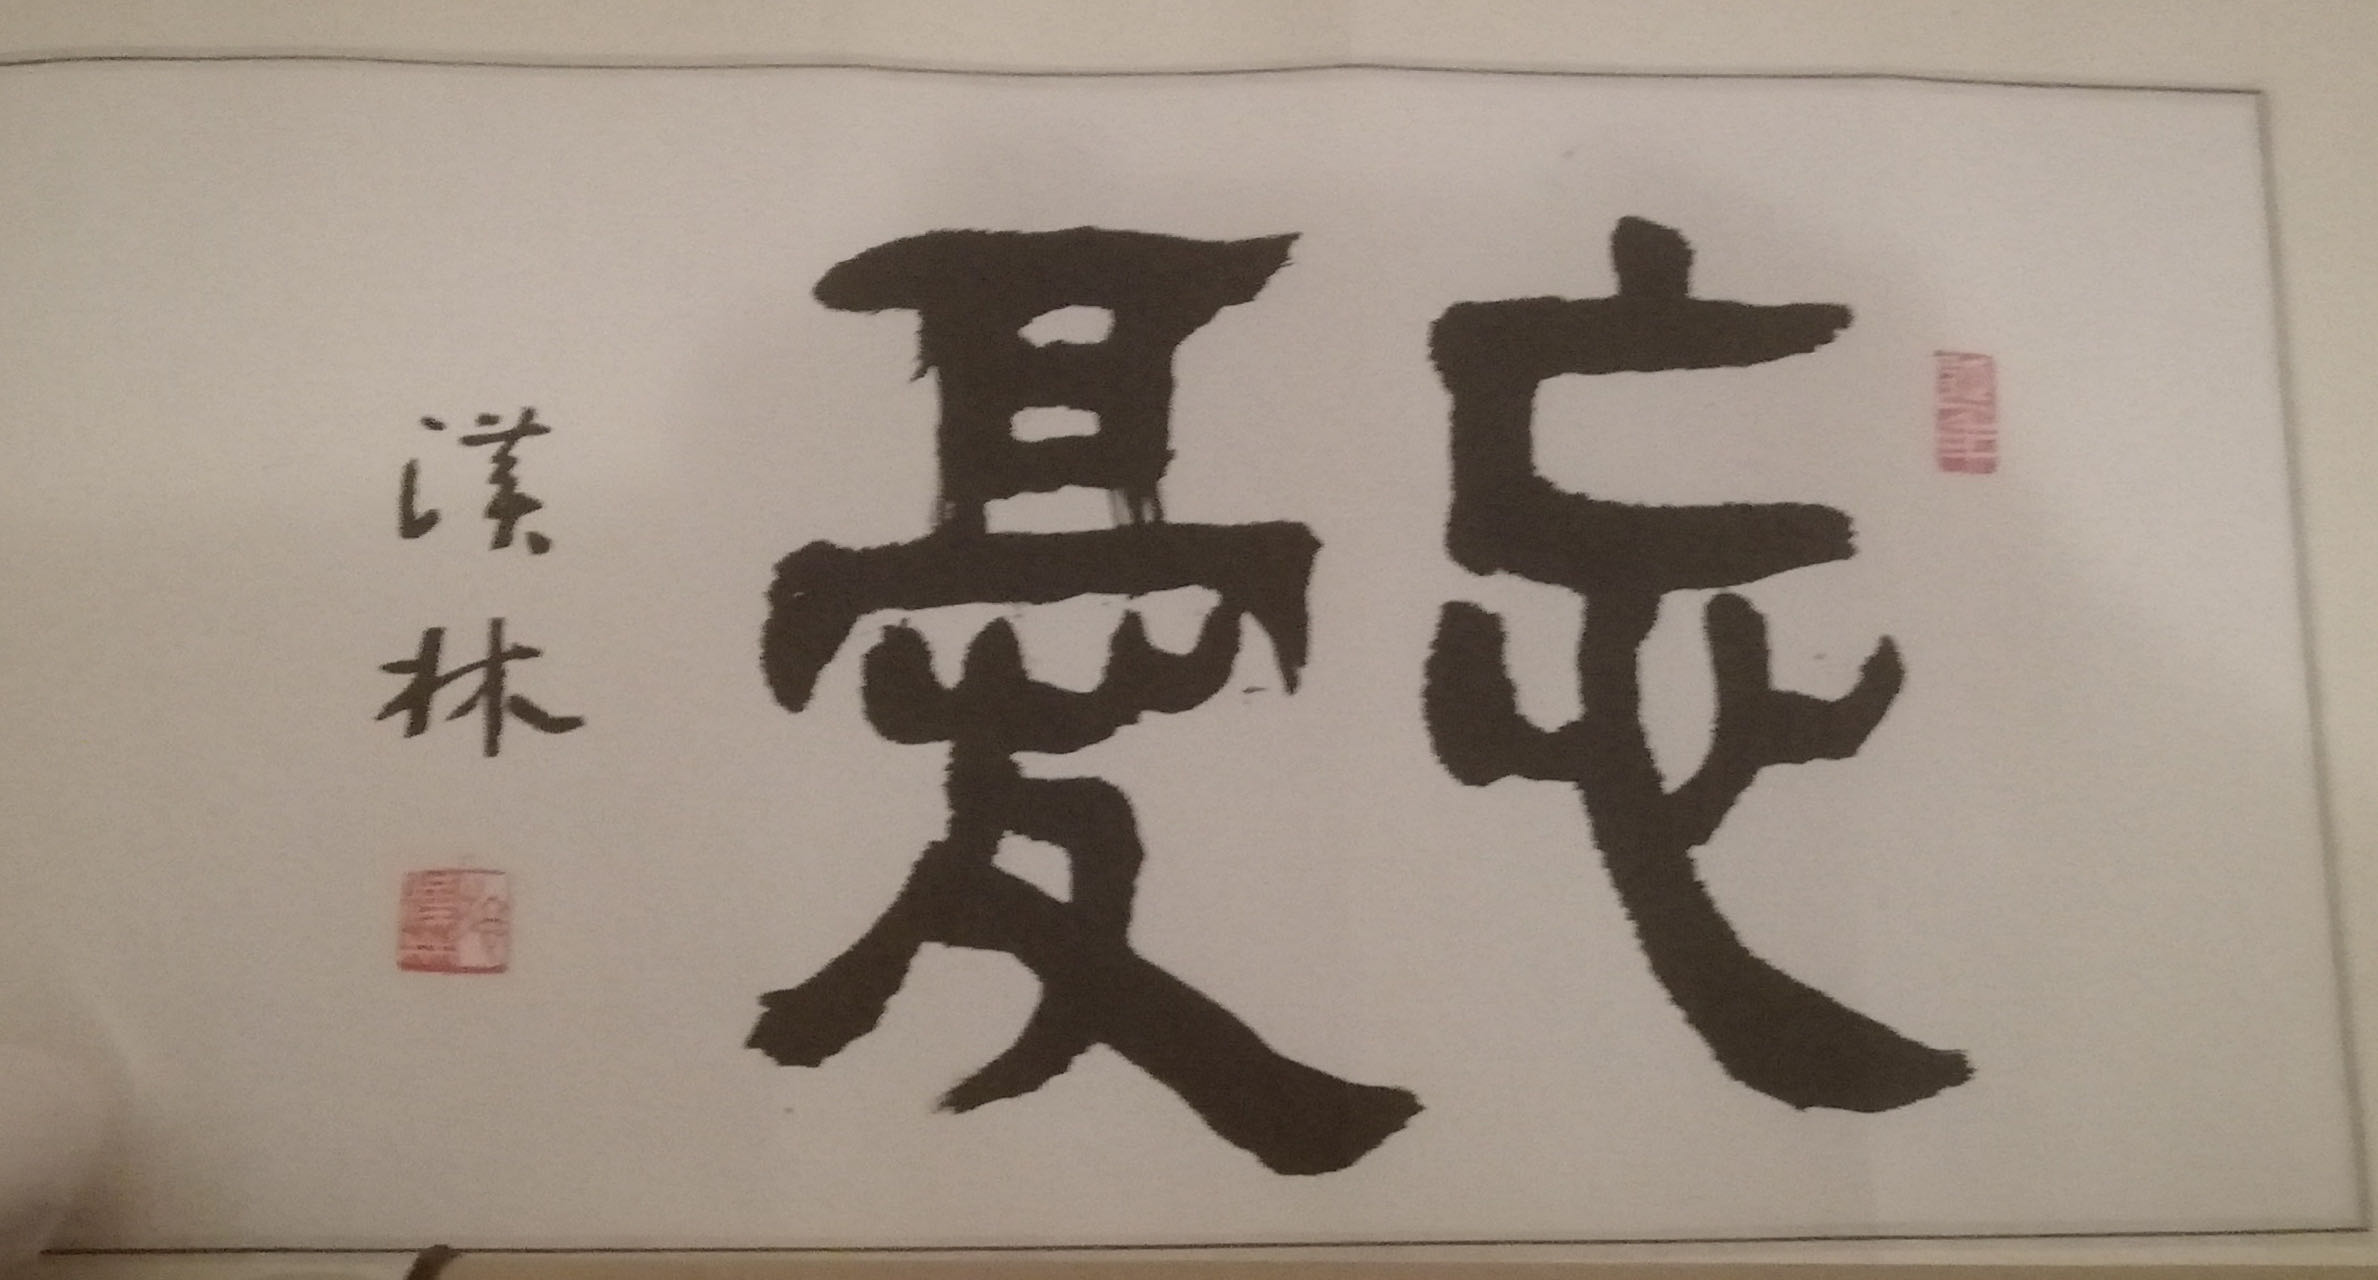 忘憂
漢林